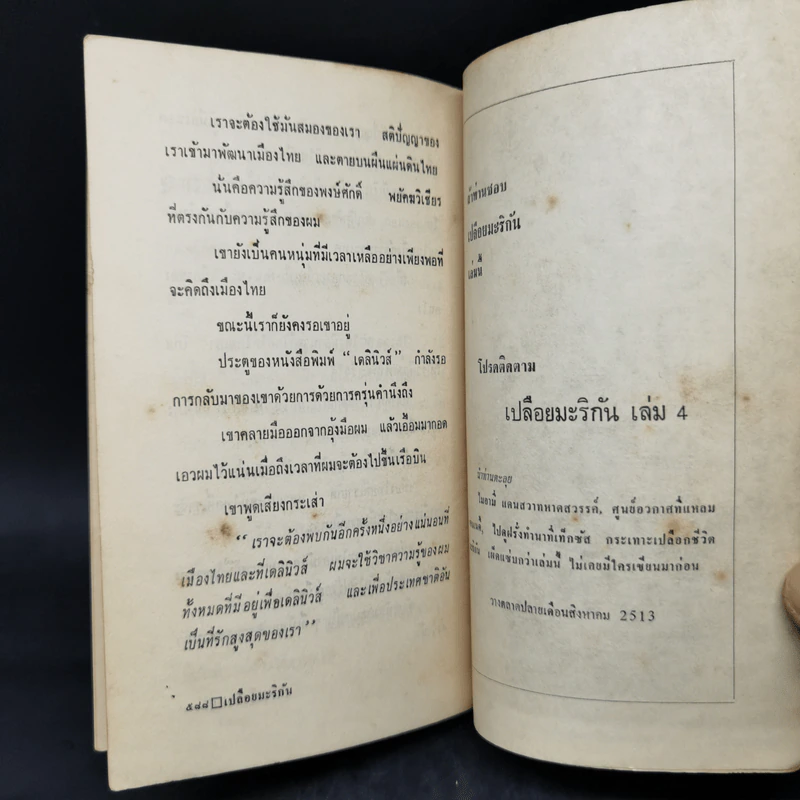 เราจะต้องใช้มันสมองของเรา สติปัญญาของ
เราเข้ามาพัฒนาเมืองไทย และตายบนผืนแผ่นดินไทย
นั่นคือความรู้สึกของพงษ์ศักดิ์ พยัคฆวิเชียร
ที่ตรงกันกับความรู้สึกของผม
เขายังเป็นคนหนุ่มที่มีเวลาเหลืออย่างเพียงพอที่
จะคิดถึงเมืองไทย
ขณะนี้เราก็ยังคงรอเขาอยู่
ประตูของหนังสือพิมพ์ “เดลินิวส์” กำลังรอ
การกลับมาของเขาด้วยการด้วยการครุ่นคำนึงถึง
เขาคลายมือออกจากอุ้งมือผม แล้วเอื้อมมากอด
เอวผมไว้แน่นเมื่อถึงเวลาที่ผมจะต้องไปขึ้นเรือบิน
เขาพูดเสียงกระเส่า
“เราจะต้องพบกันอีกครั้งหนึ่งอย่างแน่นอนที่
เมืองไทยและที่เดลินิวส์ ผมจะใช้วิชาความรู้ของผม
ทั้งหมดที่มีอยู่เพื่อเดลินิวส์ และเพื่อประเทศชาติอัน
เป็นที่รักสูงสุดของเรา”
๕๘๘ □ เปลือยมะริกัน
ถ้าท่านชอบ
เปลือยมะริกัน
เล่มนี้
โปรดติดตาม
เปลือยมะริกัน เล่ม 4
นำท่านตะลุย
ไมอามี่ แดนสวาทหาดสวรรค์, ศูนย์อวกาศที่แหลม
ไปดูฝรั่งทำนาที่เท็กซัส กระเทาะเปลือกชีวิต
เผ็ดแซ่บกว่าเล่มนี้ ไม่เคยมีใครเขียนมาก่อน
วางตลาดปลายเดือนสิงหาคม 2513